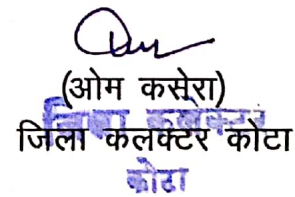 (ओम कसेरा)
जिला कलक्टर कोटा
जिला कलेक्टर
कोटा